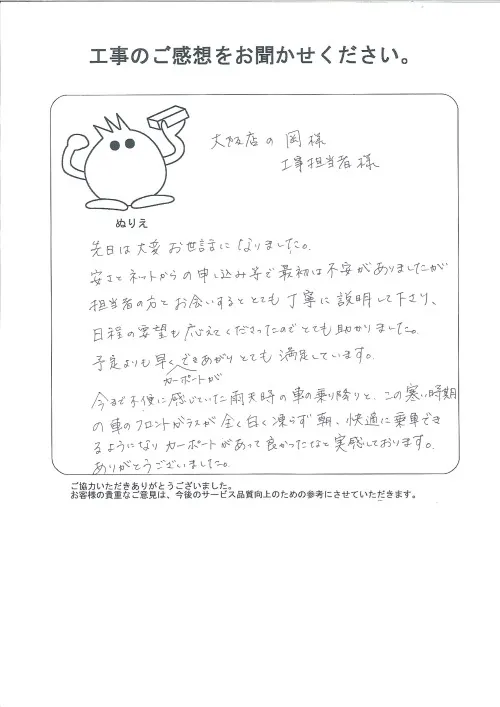 工事のご感想をお聞かせください。
大阪店の岡様
工事担当者様
ぬりえ
先日は大変お世話になりました。
安さとネットからの申し込み等で最初は不安がありましたが
担当者の方とお会いするととても丁寧に説明して下さり、
日程の要望も応えてくださったのでとても助かりました。
予定よりも早くできあがりとても満足しています。
カーポートが
今まで不便に感じていた雨天時の車の乗り降りと、この寒い時期
の車のフロントガラスが全く白く凍らず朝、快適に乗車でき
るようになりカーポートがあって良かったなと実感しております。
ありがとうございました。
ご協力いただきありがとうございました。
お客様の貴重なご意見は、今後のサービス品質向上のための参考にさせていただきます。